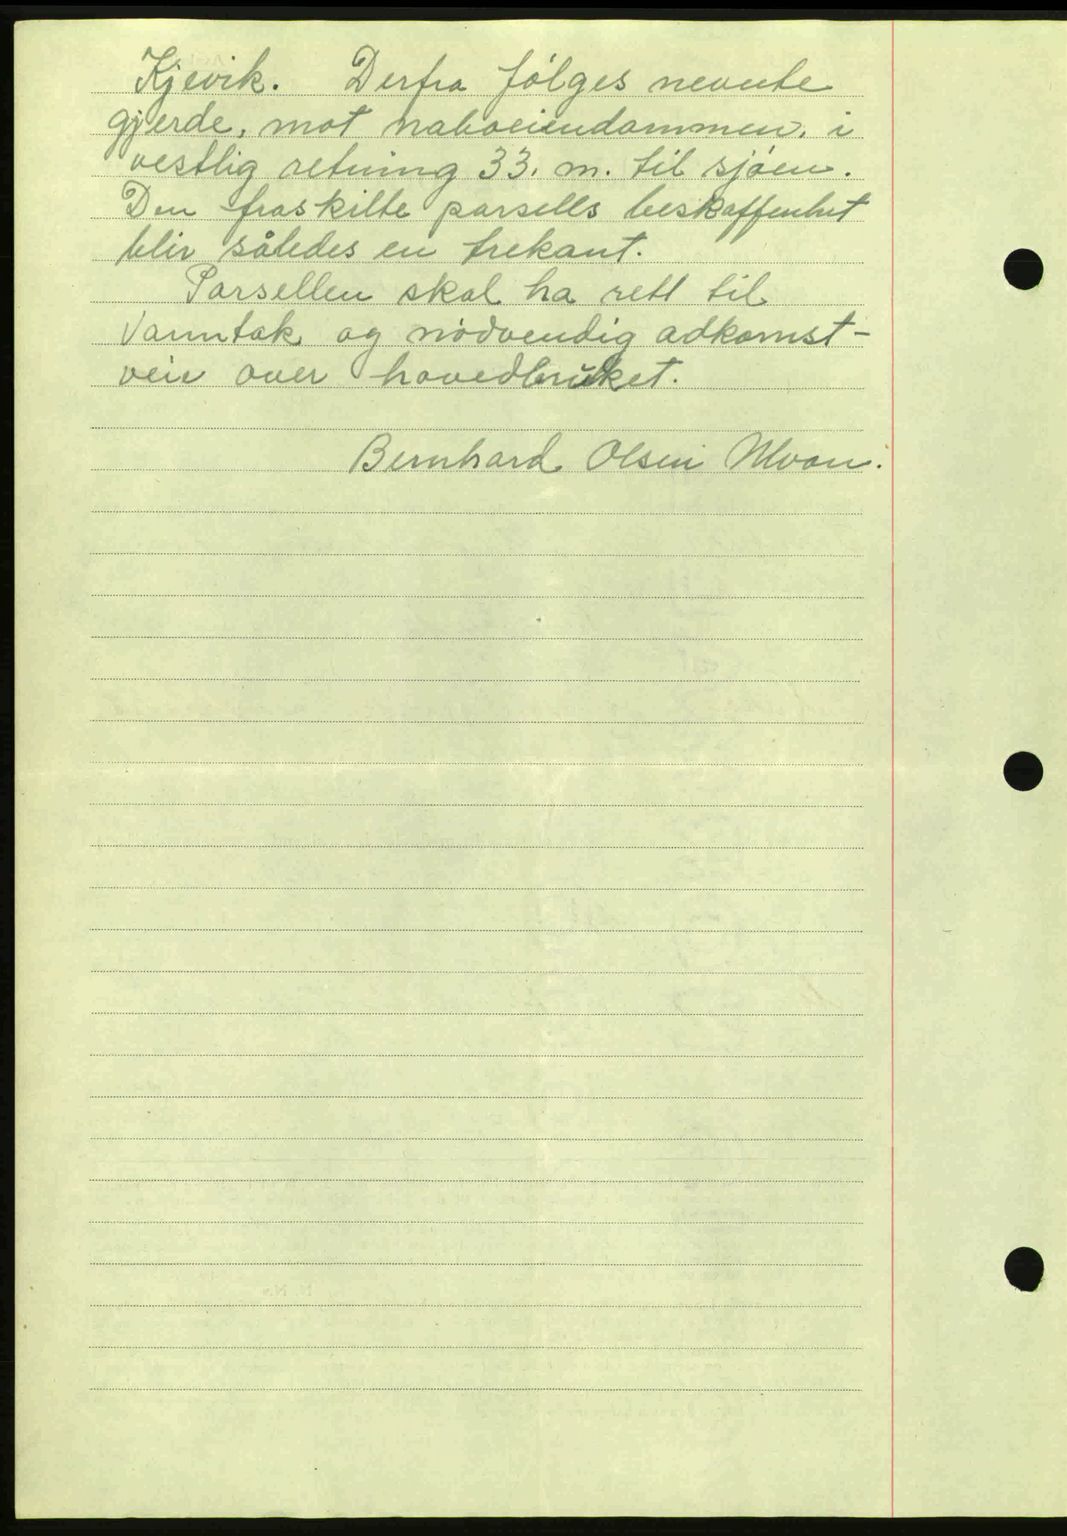 Kjevik. Derfra følges nevnte
gjerde, mot naboeiendommen, i
vestlig retning 33. m. til sjøen.
Den fraskilte parsells beskaffenhet
blir således en trekant.
Parsellen skal ha rett til
Vanntak og nødvendig adkomst-
vei over hovedbruket.
Bernhard Olsen